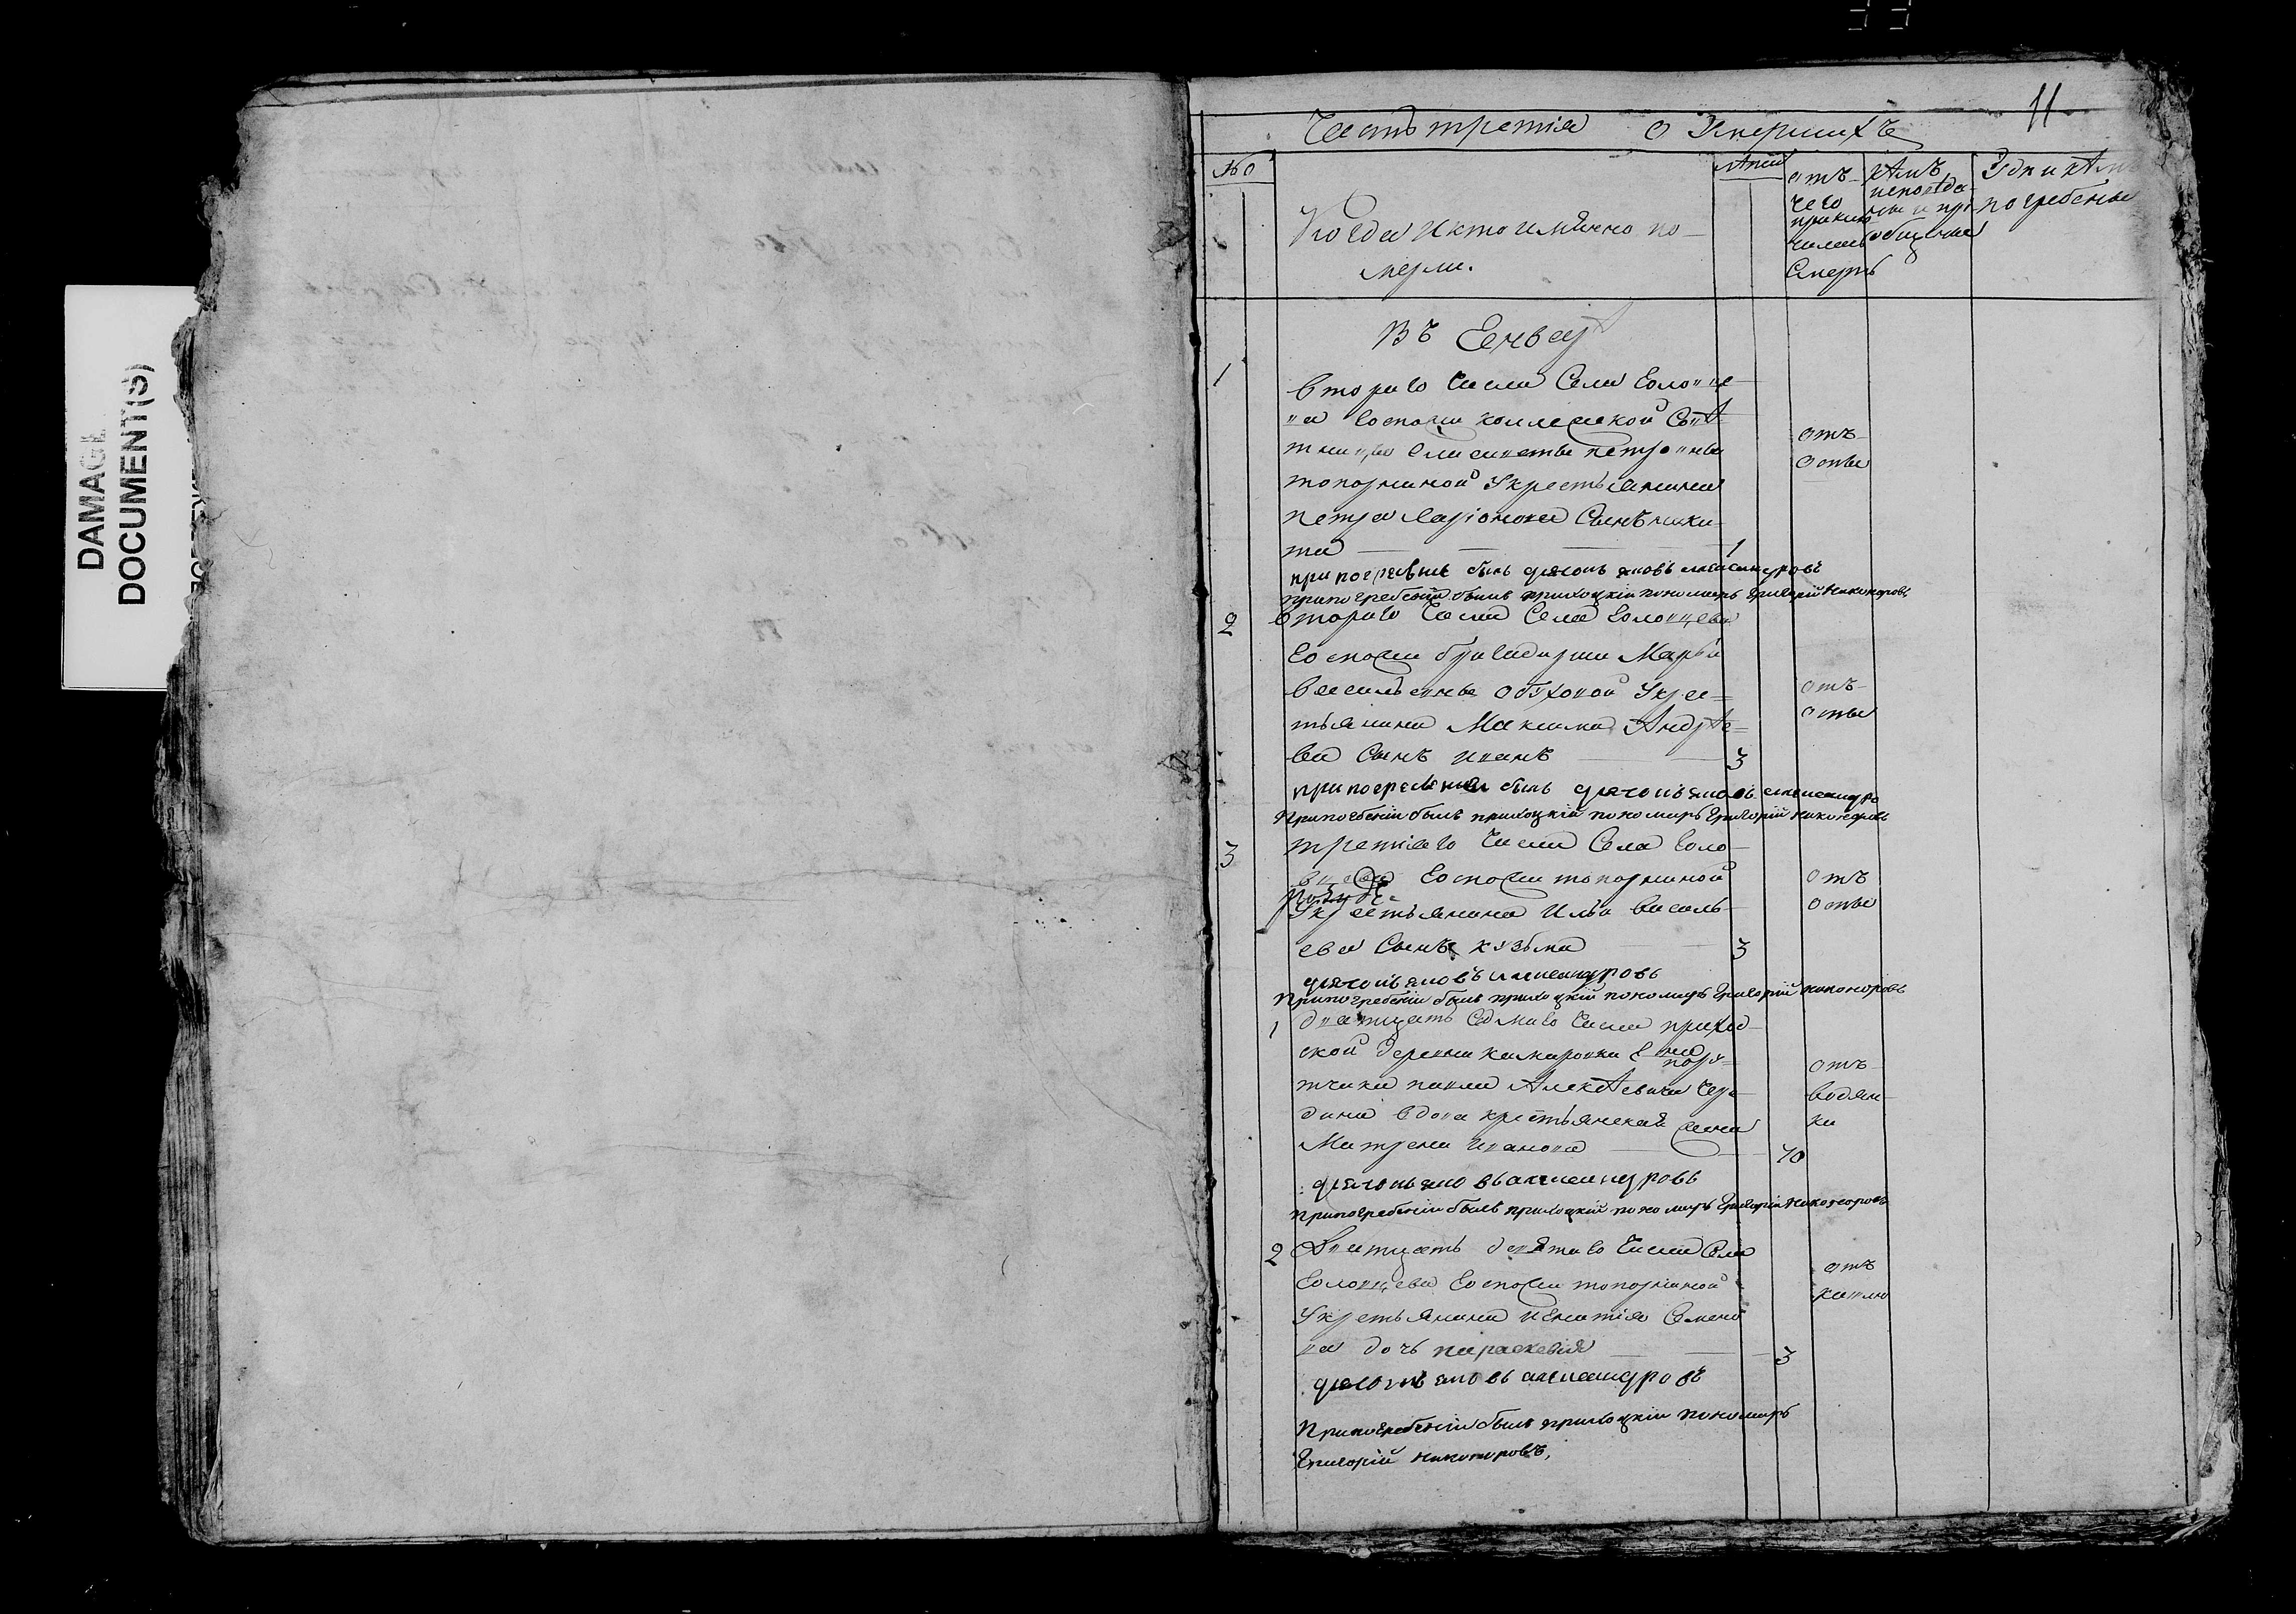 DAMAGE
DOCUMENT(S)
11
Часть третія о Умершихъ
№
Когда и кто имянно по-
мерли.
лѣта
отъ
чего
приклю-
чилась
Смерть
кѣмъ
исповѣда-
ны и прі-
общены
Гдѣ и кѣмъ
погребены
Въ Генвар
1
втораго числа Села Головце-
ва Госпожи коллежской Совѣ-
тницы елисаветы петровны
топорниной У крестьянина
петра ларіонова Сынъ ники-
та 1
отъ
оспы
при погребеніи былъ дьяконъ яковъ александровъ
при погребеніи былъ прихоцкій пономарь Григорій никоноровъ
2
втораго числа Села Головцева
Госпожи бригадирши Марьи
васильевны обуховой У крес-
тьянина Максима Андрѣе-
ва Сынъ иванъ 3
отъ
оспы
при погребеніи былъ дьяконъ яковъ александро
при погебеніи былъ прихоцкій пономарь Григорій никоноровъ
3
третіяго числа Села Голо-
вцева Госпожи топорниной
У крестьянина Ильи василь-
ева Сынъ козьма 3
отъ
оспы
дьяконъ яковъ александровъ
при погребеніи былъ прихоцкій пономарь Григорій никоноровъ
1
дватцать Седмаго числа приход-
ской деревни комаровки Г на
пору-
тчика павла Алексѣевича
дина вдова крестьянская жена
Матрена иванова 70
отъ
водян-
ки
дьяконъ яковъ александровъ
при погребеніи былъ прихоцкій пономарь Григорій никоноровъ
2
Дватцать девятаго числа Села
Головцева Госпожи топорниной
У кретьянина игнатія Семено
ва дочь параскевія 3
отъ
кашлю
дьяконъ яковъ александровъ
При погребеніи былъ прихоцкіи пономарь
Григорій никоноровъ,